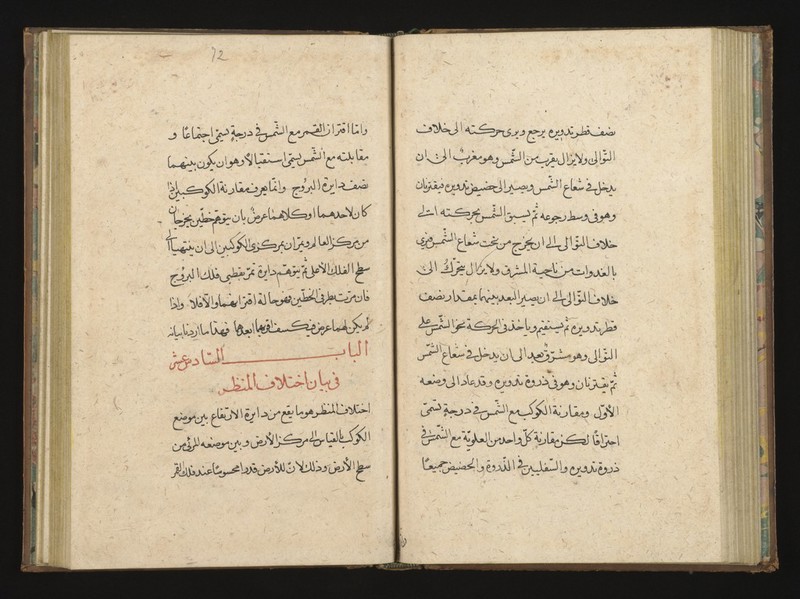 نصف قطر تدويره يرجع ويرى حركته الى خلاف
التوالى ولا يزال يقرب من الشمس وهو مغرب الى ان
يدخل فى شعاع الشمس ويصير الى حضيض تدويره فيقترنان
وهو فى وسط رجوعه ثم تسبق الشمس بحركته الى
خلاف التوالى الى ان يخرج من تحت شعاع الشمس فيرى
بالغدوات من ناحية المشرق ولا يزال يتحرك الى
خلاف التوالى الى ان يصير البعد بينهما بمقدار نصف
قطر تدويره ثم يستقيم وياخذ فى الحركة نحو الشمس على
التوالى وهو مشرق بعد الى ان يدخل فى شعاع الشمس
ثم يقترنان وهو فى ذروة تدويره وقد عاد الى وضعه
الاول ومقارنة الكوكب مع الشمس فى درجة تسمى
احتراقا لكن مقارنة كل واحد من العلوية مع الشمس فى
ذروة تدويره والسفليين فى الذروة والحضيض جميعا
72
واما اقتران القمر مع الشمس فى درجة يسمى اجتماعا و
مقابلته مع الشمس يسمى استقبالا وهو ان يكون بينهما
نصف دايرة البروج وانما يعرف مقارنة الكوكبين اذا
كان لاحدهما او كلاهما عرض بان يتوهم خطين يخرجان
من مركز العالم ويمران بمركزى الكوكبين الى ان ينتهيا الى
سطح الفلك الاعلى ثم يتوهم دايرة تمر بقطبى فلك البروج
فان مرت بطرفى الخطين فهو حالة اقترانهما والا فلا واذا
لم يكن لهما عرض فيكسف اقربهما ابعدهما فهذا ما اردنا بيانه
الباب السادس عشر
فى بيان اختلاف المنظر
اختلاف المنظر هو ما يقع من دايرة الارتفاع بين موضع
الكوكب بالقياس الى مركز الارض وبين موضعه المرئى من
سطح الارض وذلك لان للارض قدرا محسوسا عند فلك القمر